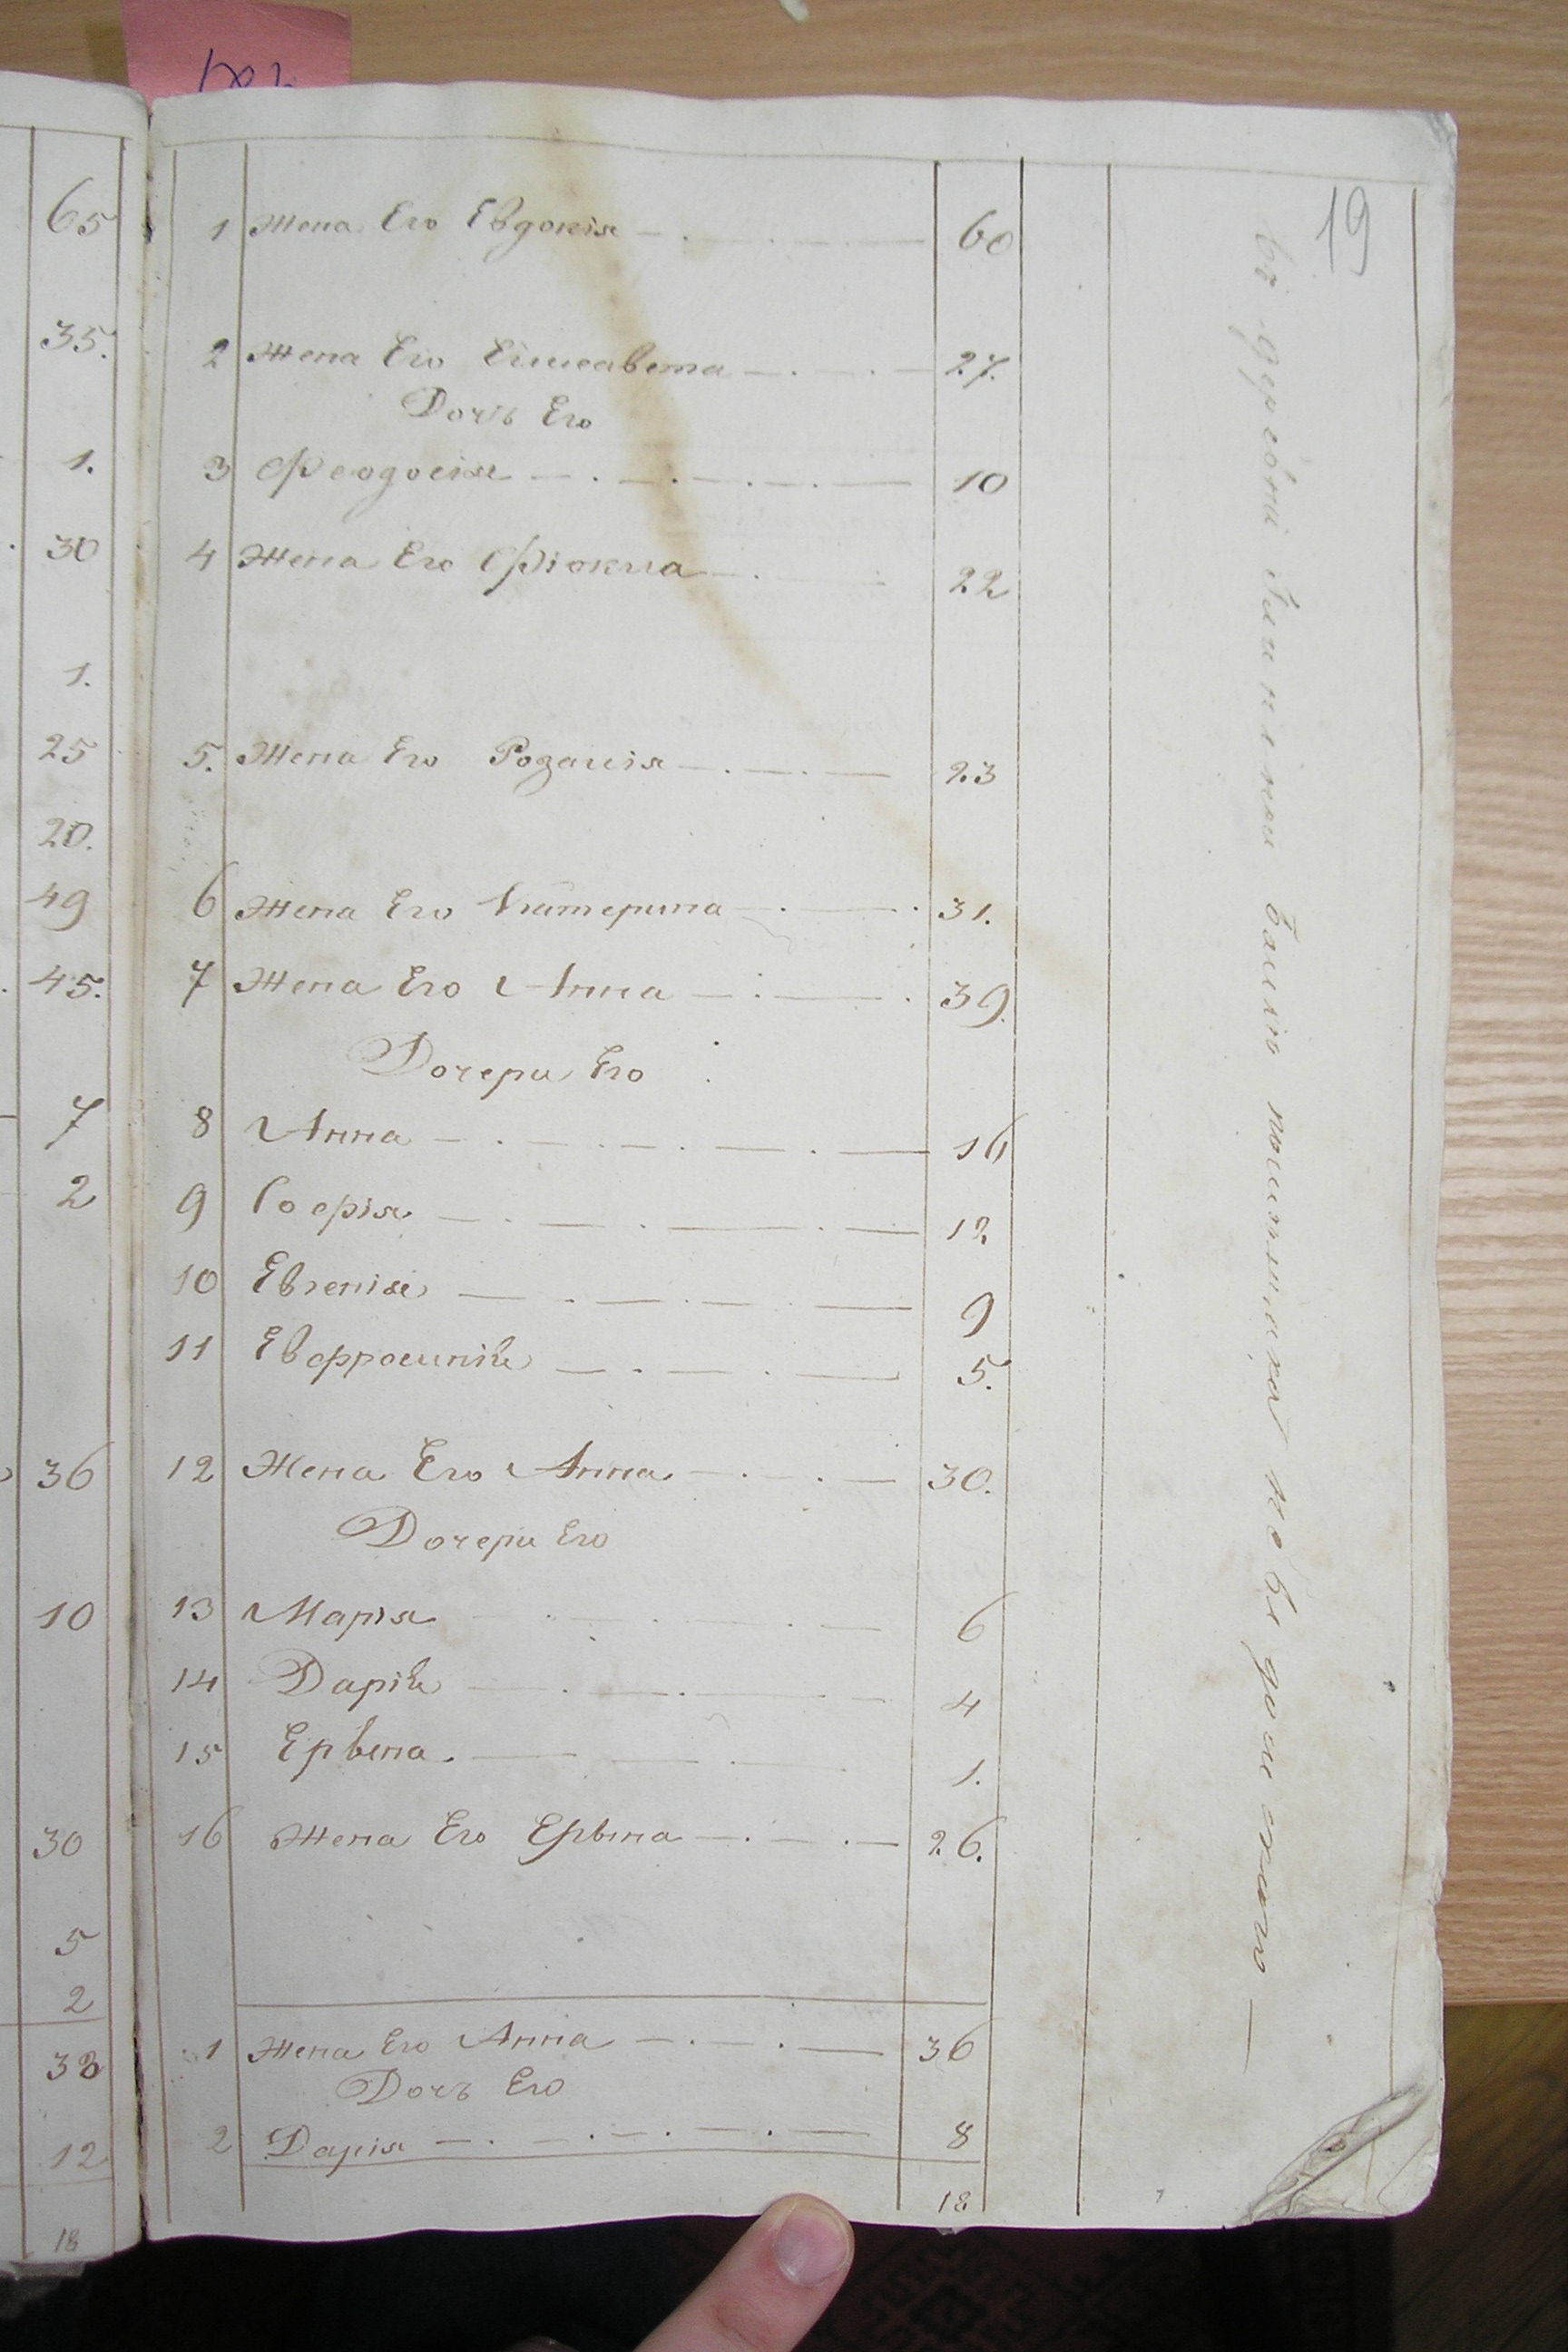 19
65
35.
1.
30
1.
25
20.
49
45.
7
2
36
10
30
5
2
38
12
18
1 Жена Его Евдокія 60
2 Жена Его Елисавета 27.
Дочь Его
3 Феодосія 10
4 Жена Его Фіокла 22
5. Жена Его Розалія 23
6 Жена Его Катерина 31.
7 Жена Его Анна 39.
Дочери Его
8 Анна 16
9 Софія 12
10 Евгенія 9
11 Евфросинія 5.
12 Жена Его Анна 30.
Дочери Его
13 Марія 6
14 Дарія 4
15 Ефвина 1.
16 Жена Его Ефвина 26.
1 Жена Его Анна 36
Дочь Его
2 Дарія 8
18
въ деревни